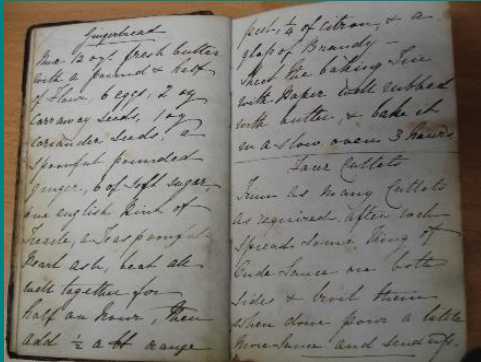 Gingerbread
12 ozs. fresh butter
with a pound & half
of Flour, 6 eggs, 2 oz
Carraway Seeds, 1 oz
Coriander Seeds, a
Spoonful pounded
Ginger, 6 of Soft Sugar
one english Pint of
Treacle, a Teaspoonful
Pearl ash, beat all
well together for
half an hour, then
add ½ a orange
peel, ¼ of citron, & a
glass of Brandy —
Sheet the baking Tin
with Paper well rubbed
with butter, & bake it
in a slow oven 3 hours
Cutlets
Trim as many Cutlets
as required, after well
Spread some thing of
Sauce on both
Sides & broil them
when done pour a little
more Sauce and send up.